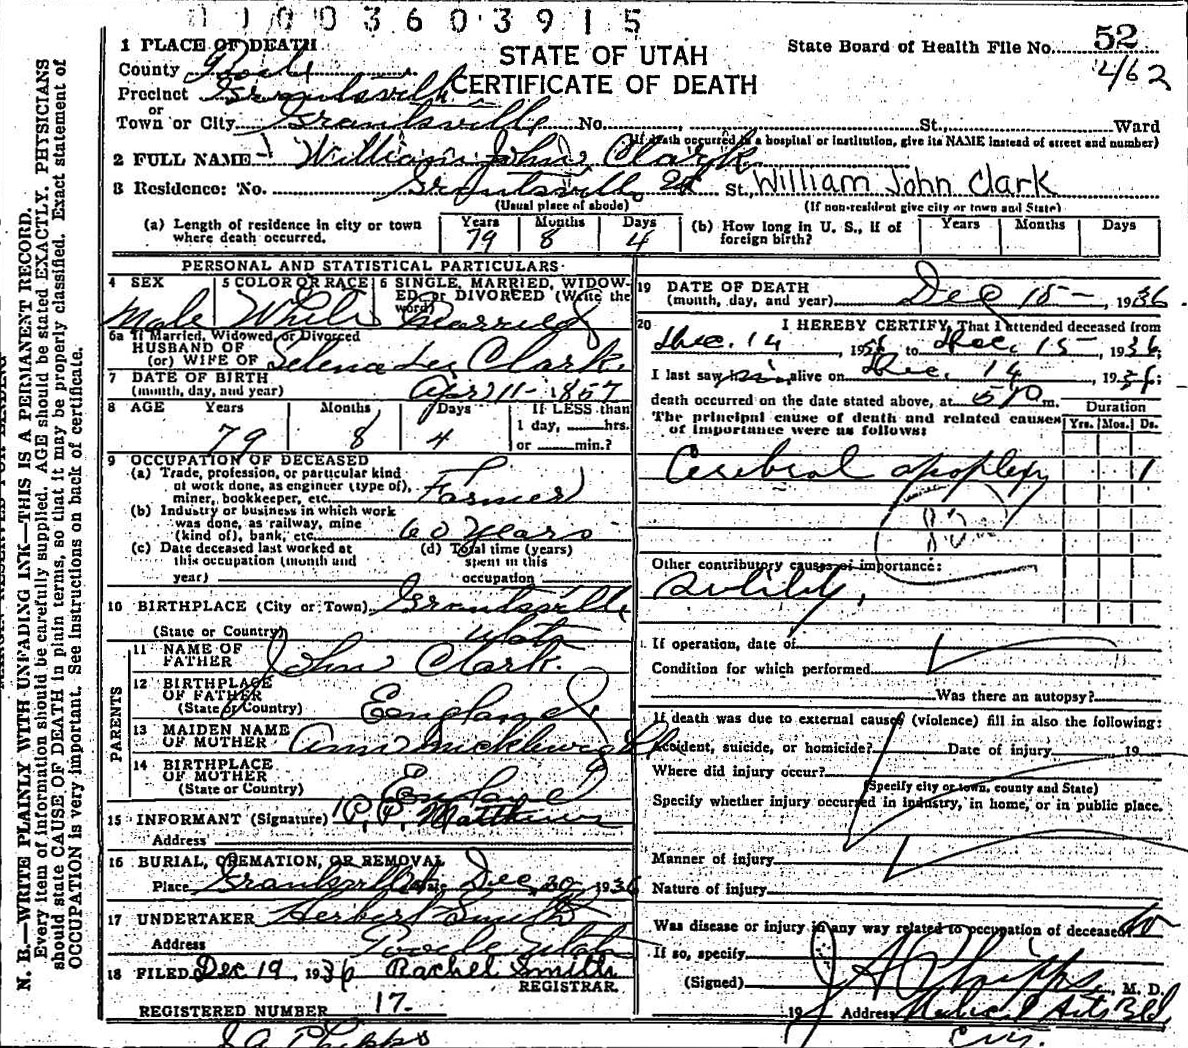 01003603915
1 PLACE OF DEATH
STATE OF UTAH
CERTIFICATE OF DEATH
State Board of Health File No. 52
2/62
County Tooele
Precinct Grantsville
or
Town or City Grantsville No. St., Ward
(If death occurred in a hospital or institution, give its NAME instead of street and number)
2 FULL NAME William John Clark
3 Residence: No. Grantsville St., William John Clark
(Usual place of abode) (If non-resident give city or town and State)
(a) Length of residence in city or town where death occurred. Years 79 Months 8 Days 4
(b) How long in U. S., if of foreign birth? Years Months Days
PERSONAL AND STATISTICAL PARTICULARS
4 SEX Male
5 COLOR OR RACE White
6 SINGLE, MARRIED, WIDOWED, or DIVORCED (Write the word) Married
6a If Married, Widowed, or Divorced
HUSBAND OF
(or) WIFE OF Selena Clark
7 DATE OF BIRTH
(month, day, and year) Apr 11-1857
8 AGE Years 79 Months 8 Days 4 If LESS than 1 day, hrs. or min.?
9 OCCUPATION OF DECEASED
(a) Trade, profession, or particular kind of work done, as engineer (type of), miner, bookkeeper, etc. Farmer
(b) Industry or business in which work was done, as railway, mine (kind of), bank, etc. 60 Years
(c) Date deceased last worked at this occupation (month and year)
(d) Total time (years) spent in this occupation
10 BIRTHPLACE (City or Town) Grantsville
(State or Country) Utah
PARENTS
11 NAME OF FATHER John Clark
12 BIRTHPLACE OF FATHER
(State or Country) England
13 MAIDEN NAME OF MOTHER Ann
14 BIRTHPLACE OF MOTHER
(State or Country) England
15 INFORMANT (Signature) P. P. Matthews
Address
16 BURIAL, CREMATION, OR REMOVAL
Place Grantsville Date Dec 1936
17 UNDERTAKER Herbert Smith
Address Tooele Utah
18 FILED Dec 19, 1936 Rachel Smith
REGISTRAR.
REGISTERED NUMBER 17.
J A Phipps
19 DATE OF DEATH
(month, day, and year) Dec 15 - , 1936
20 I HEREBY CERTIFY, That I attended deceased from
Dec. 14, 1936 to Dec. 15, 1936;
I last saw him alive on Dec. 14 1936;
death occurred on the date stated above, at m.
The principal cause of death and related causes of importance were as follows:
Duration
Yrs. Mos. Ds.
Cerebral apoplexy 1
Other contributory causes of importance:
Senility,
If operation, date of
Condition for which performed
Was there an autopsy?
If death was due to external causes (violence) fill in also the following:
Accident, suicide, or homicide? Date of injury 19
Where did injury occur?
(Specify city or town, county and State)
Specify whether injury occurred in industry, in home, or in public place.
Manner of injury
Nature of injury
Was disease or injury in any way related to occupation of deceased? No
If so, specify
(Signed) J A Phipps, M. D.
19 Address Medical Arts Bld
City.
N. B.—WRITE PLAINLY WITH UNFADING INK—THIS IS A PERMANENT RECORD.
Every item of information should be carefully supplied. AGE should be stated EXACTLY. PHYSICIANS
should state CAUSE OF DEATH in plain terms, so that it may be properly classified. Exact statement of
OCCUPATION is very important. See instructions on back of certificate.